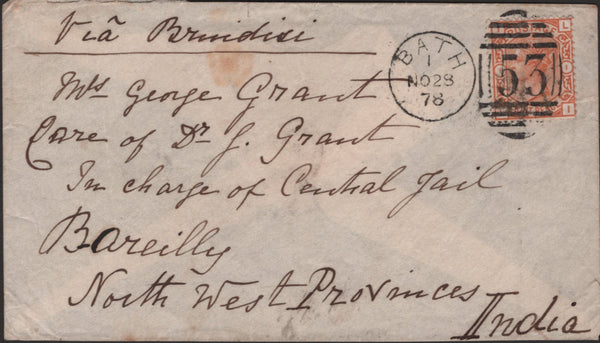 Viâ Brindisi
BATH
1
NO 28
78
53
L
I
Mrs George Grant
Care of Dr. J. Grant
In charge of Central Jail
Bareilly
North West Provinces
India